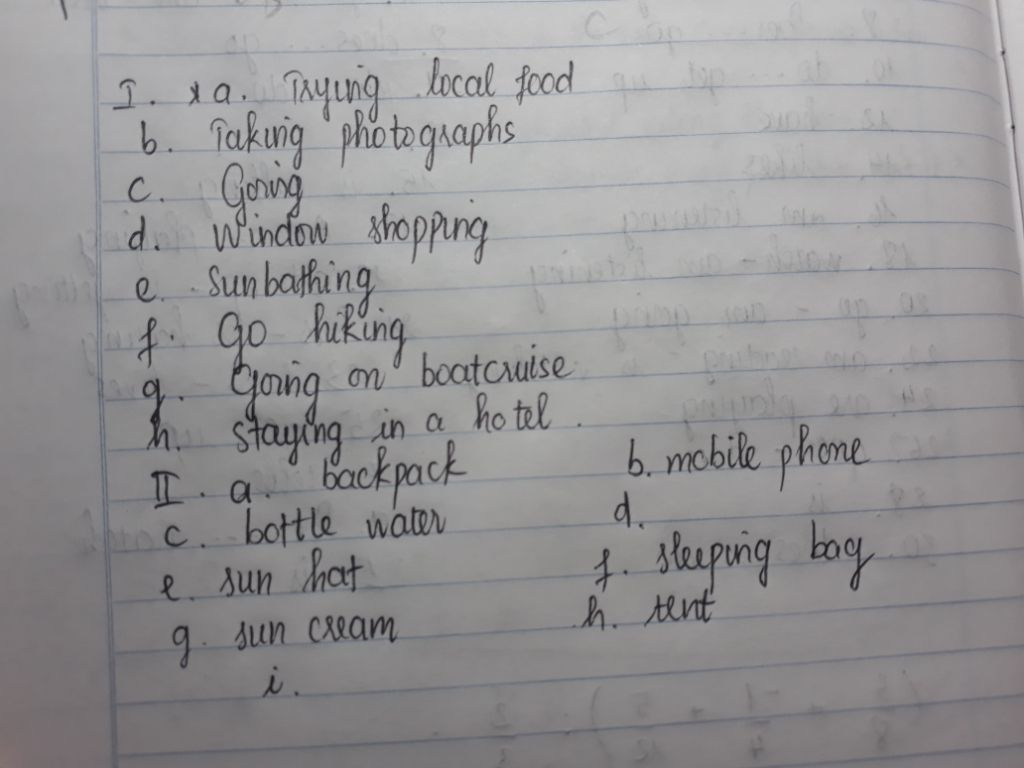 I. * a. Trying local food
b. Taking photographs
c. Going
d. Window shopping
e. Sunbathing
f. Go hiking
g. Going on boatcruise
h. staying in a hotel.
II. a. backpack b. mobile phone
c. bottle water d.
e. sun hat f. sleeping bag
g. sun cream h. tent
i.